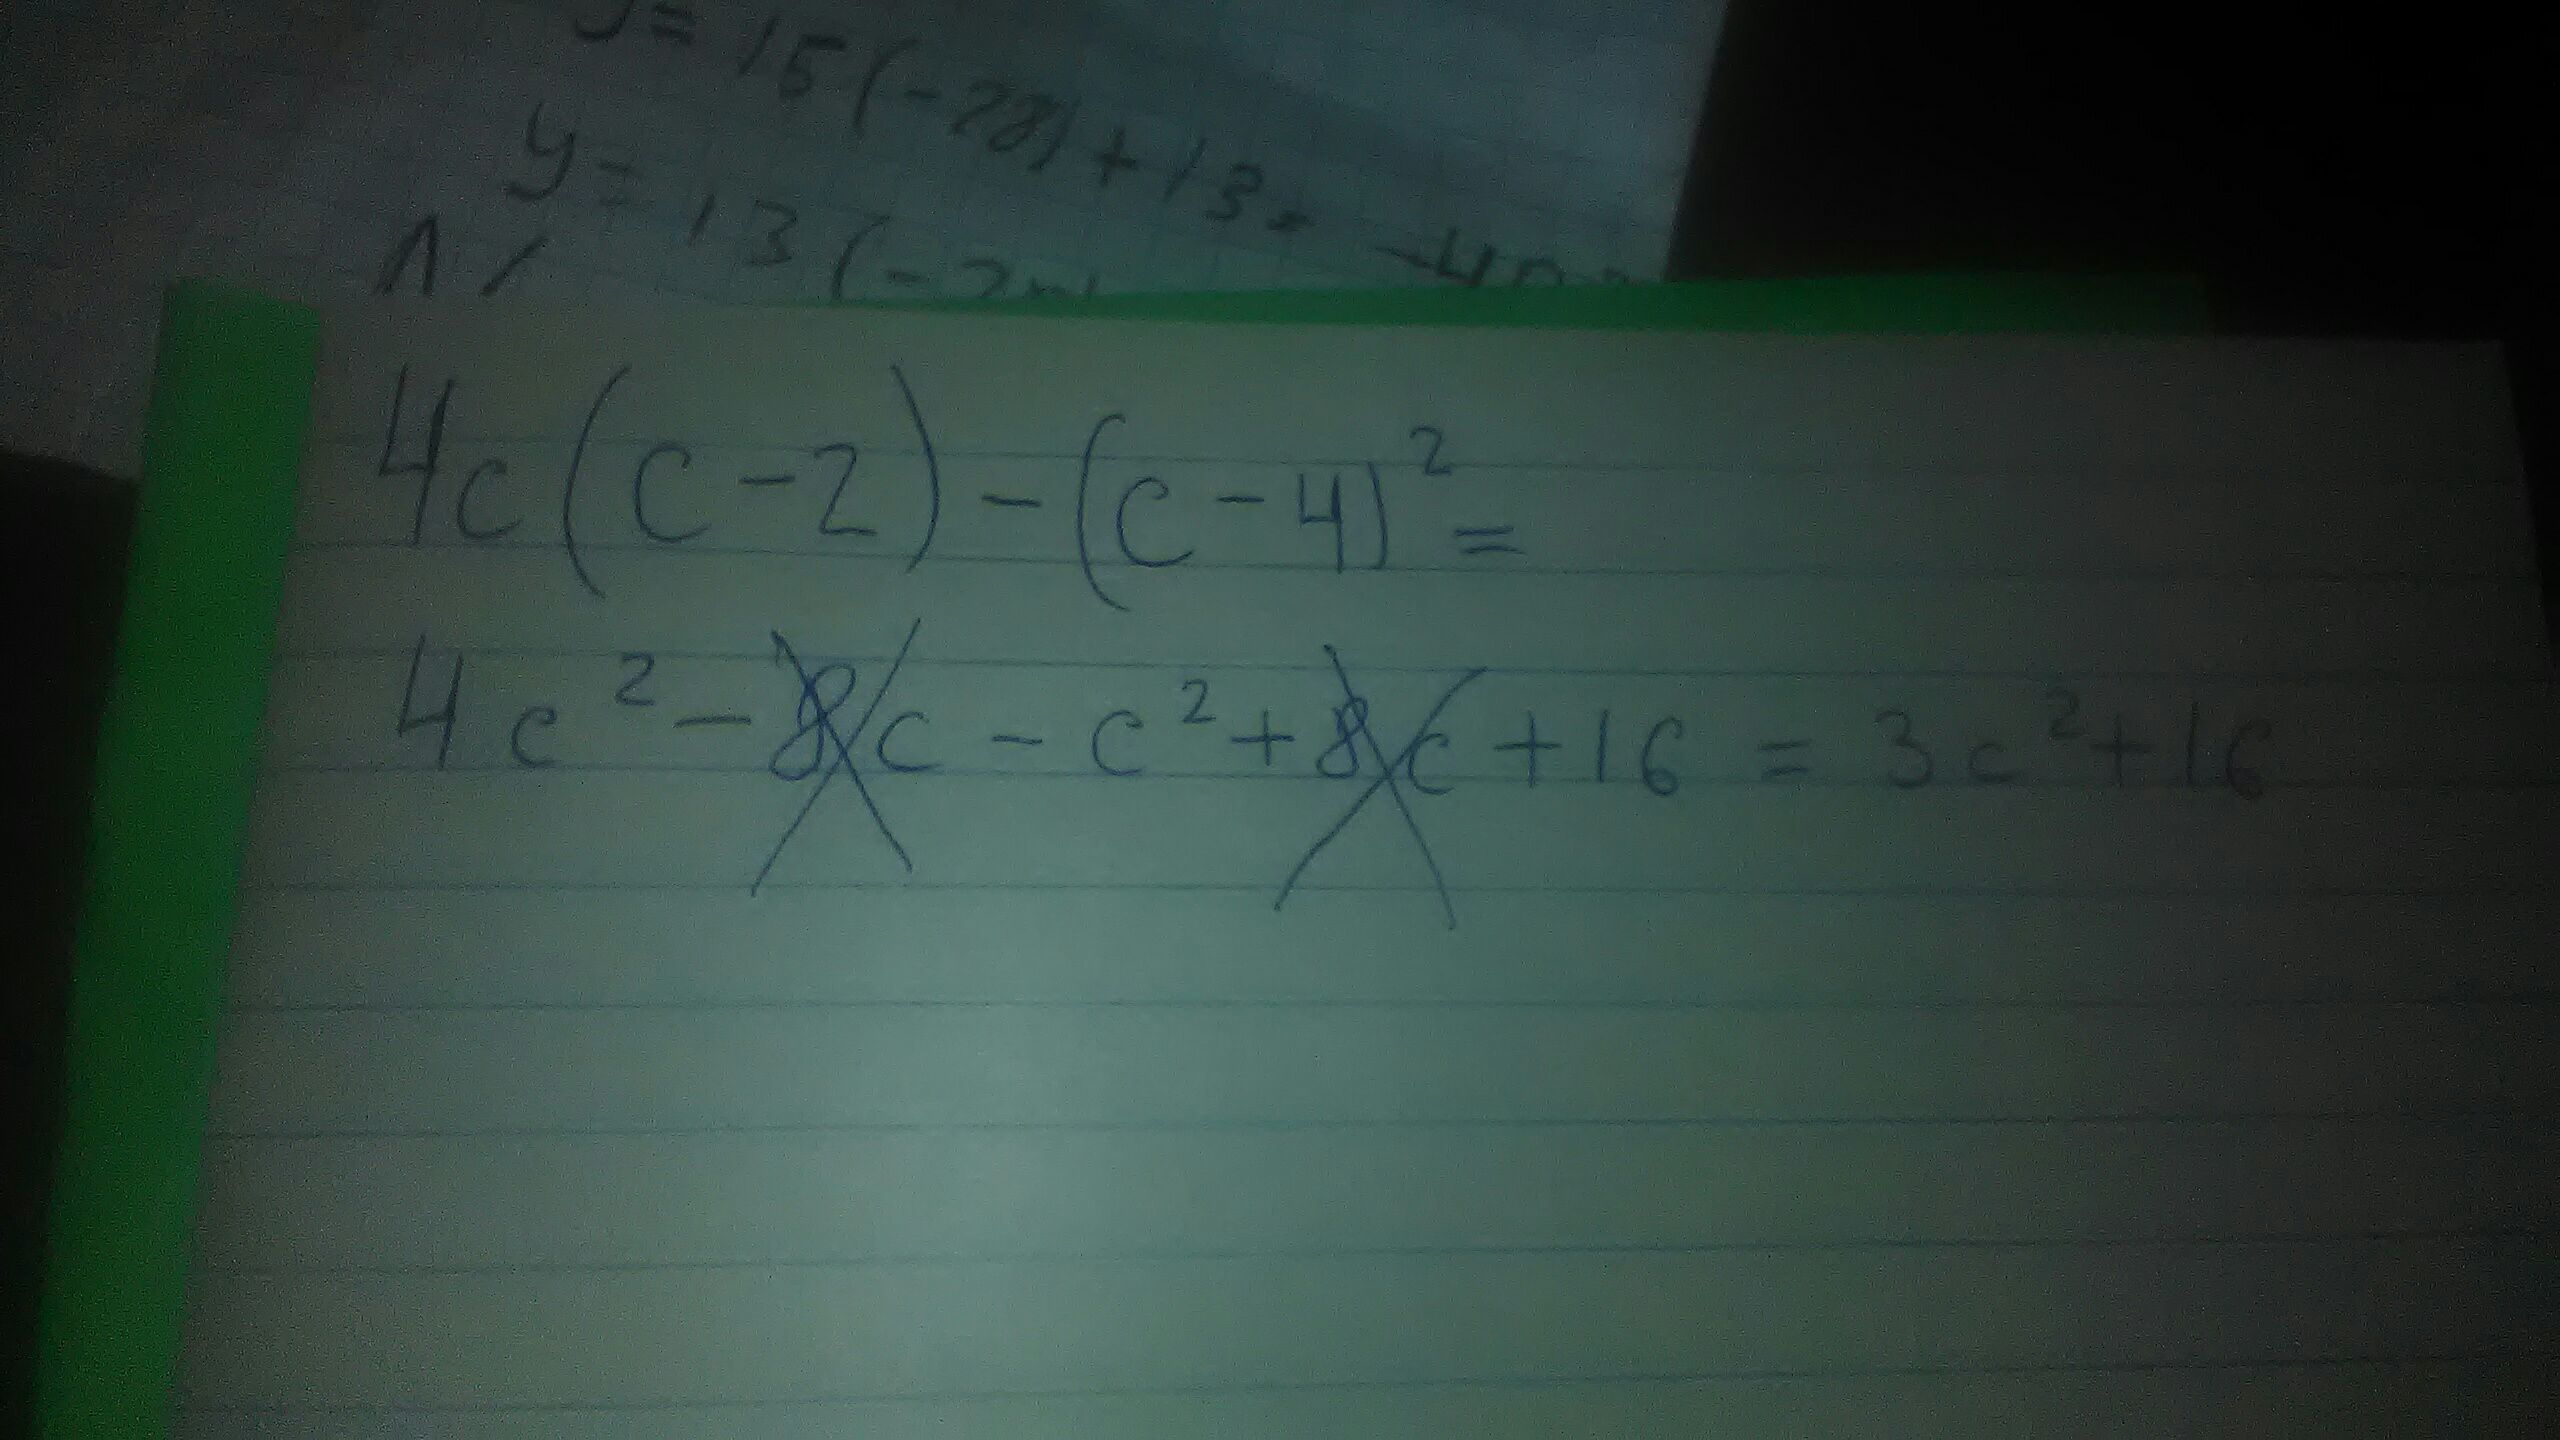 = 15(-28)+13=
y = 13(-2
4c(c-2)-(c-4)²=
4c²-8c-c²+8c+16 = 3c²+16